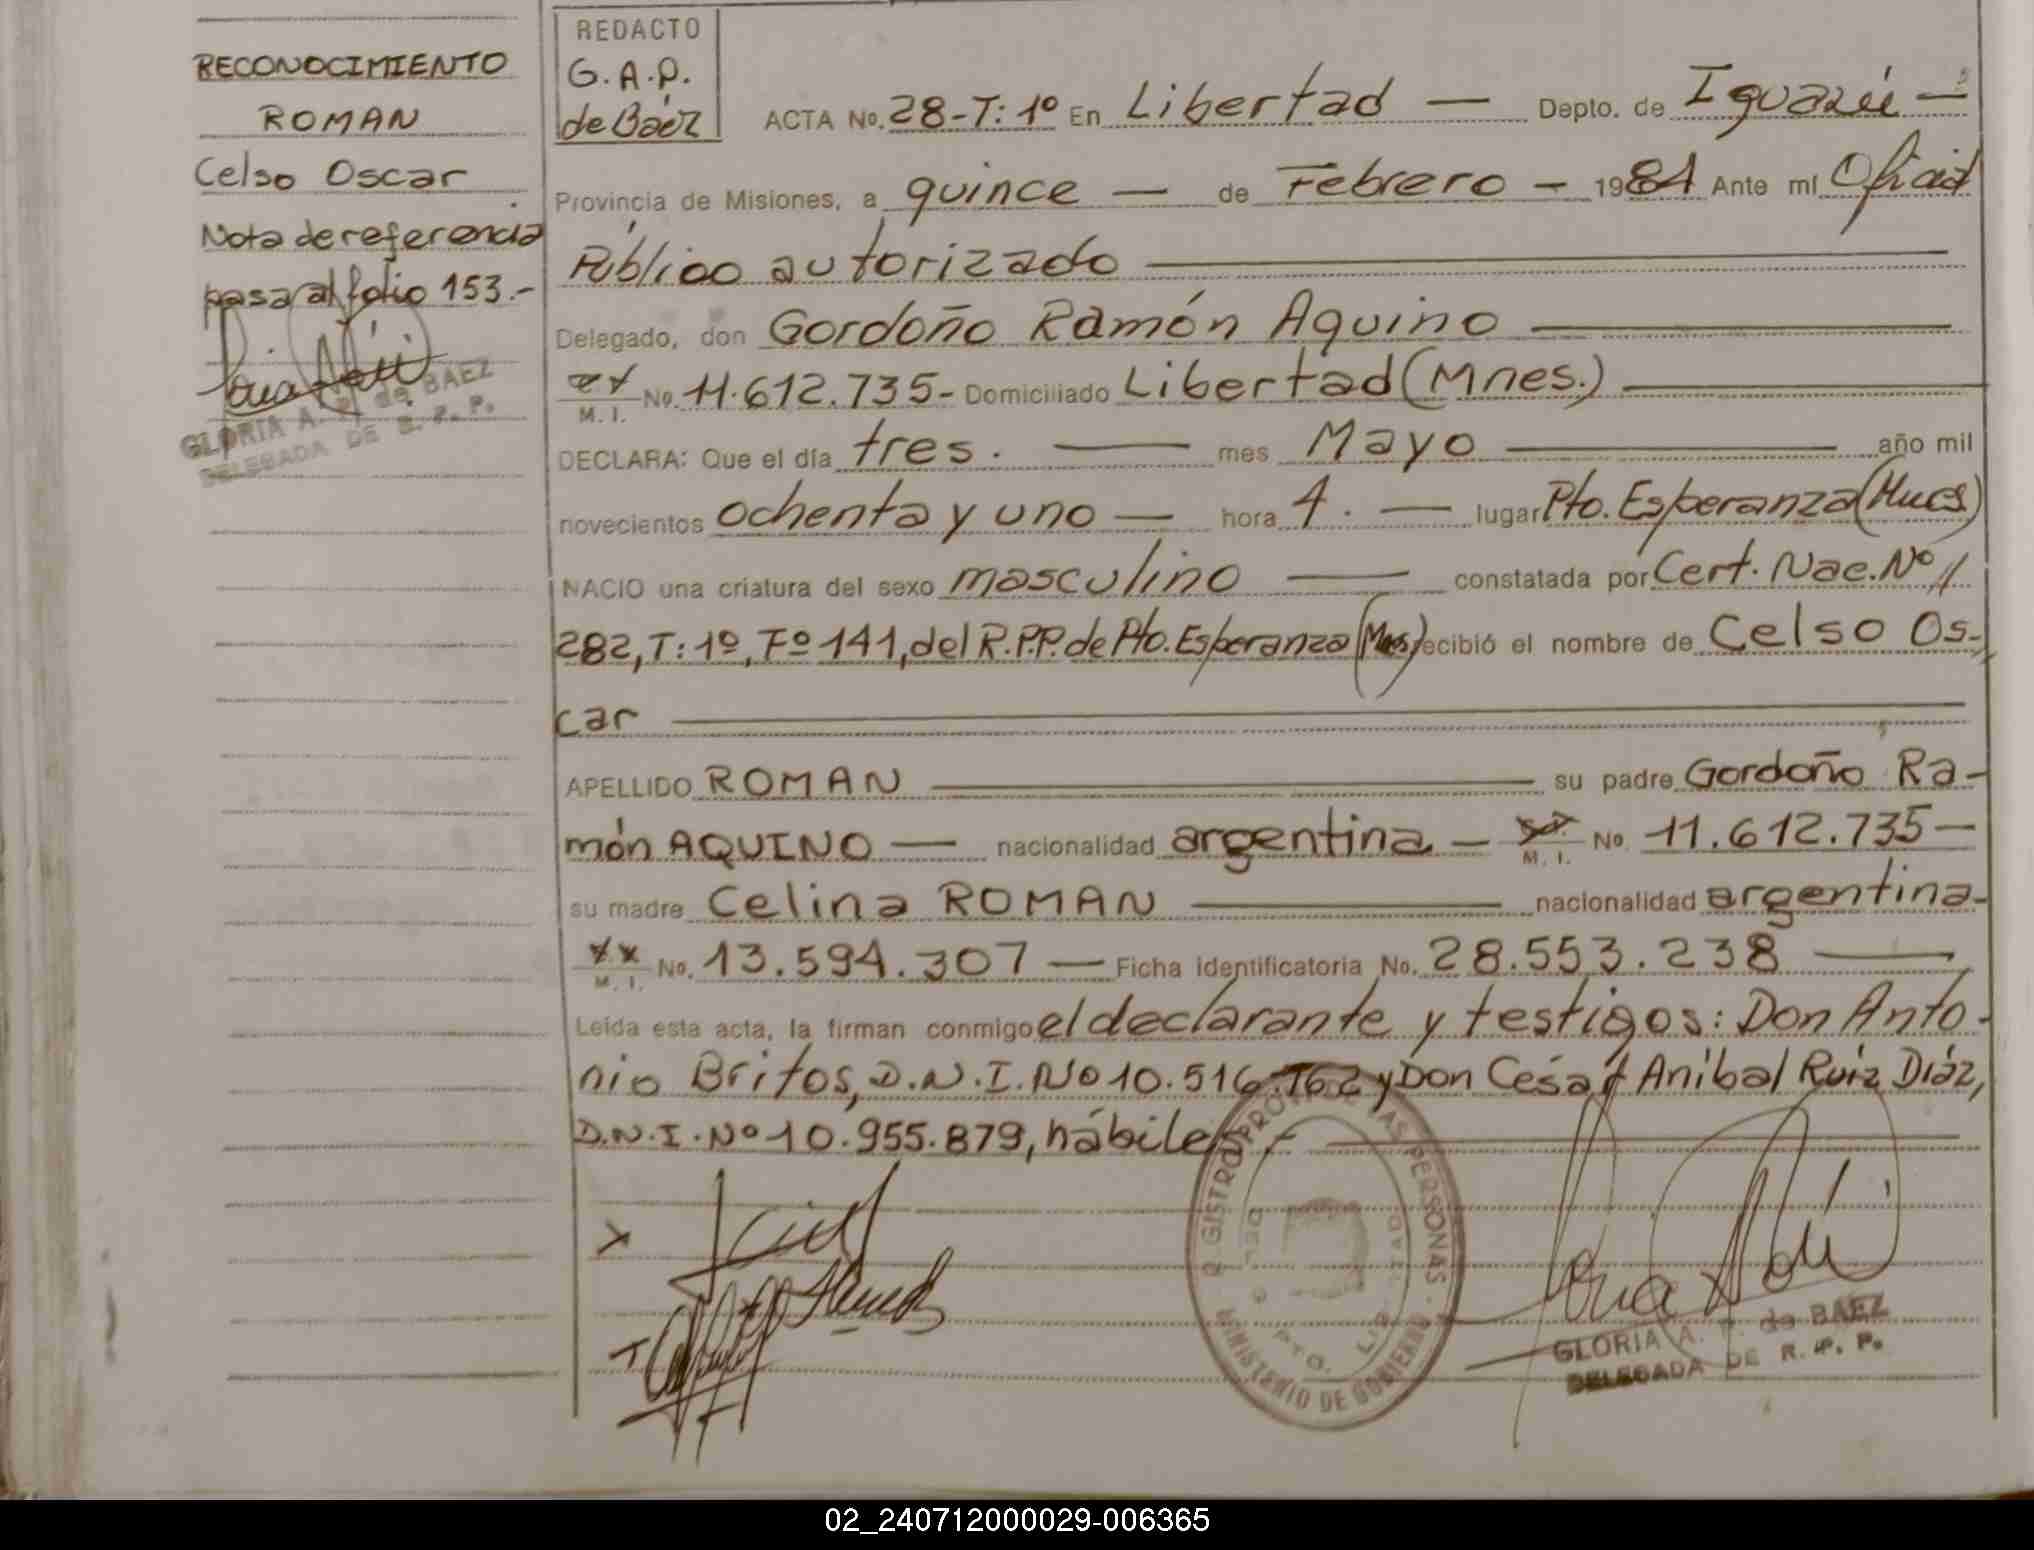 RECONOCIMIENTO
ROMAN
Celso Oscar
Nota de referencia
pasa al folio 153.-
GLORIA A. P. de BAEZ
DELEGADA DE R. P. P.
REDACTO
G.A.P.
de Báez
ACTA No. 28-T:1º En Libertad — Depto. de Iguazú —
Provincia de Misiones, a quince — de Febrero — 1984 Ante mi Oficial
Público autorizado
Delegado, don Gordoño Ramón Aquino
M. I. No. 11.612.735- Domiciliado Libertad (Mnes.)
DECLARA: Que el día tres. — mes Mayo — año mil
novecientos ochenta y uno — hora 4. — lugar Pto. Esperanza (Mnes)
NACIO una criatura del sexo masculino — constatada por Cert. Nac. Nº //
282, T:1º, Fº 141, del R.P.P. de Pto. Esperanza (Mnes) recibió el nombre de Celso Os-
car
APELLIDO ROMAN — su padre Gordoño Ra-
món AQUINO — nacionalidad argentina — M. I. No 11.612.735—
su madre Celina ROMAN — nacionalidad argentina-
M. I. No. 13.594.307 — Ficha identificatoria No. 28.553.238 —
Leída esta acta, la firman conmigo el declarante y testigos: Don Anto-
nio Britos, D.N.I. Nº 10.516.762 y Don César Anibal Ruiz Díaz,
D.N.I. Nº 10.955.879, hábiles.-
REGISTRO PROV. DE LAS PERSONAS
MINISTERIO DE GOBIERNO
PTO. LIBERTAD
GLORIA A. P. de BAEZ
DELEGADA DE R. P. P.
02_240712000029-006365